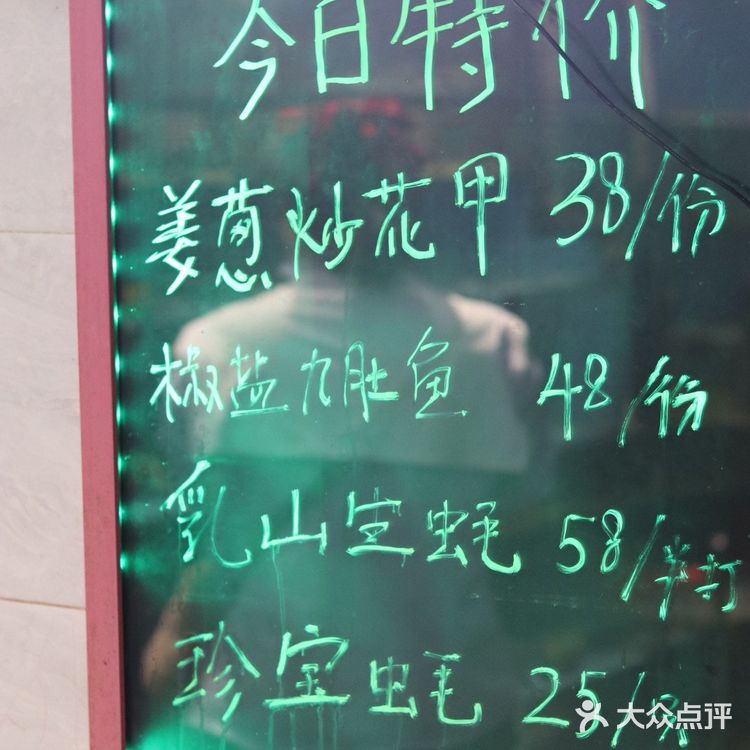 今日特价
姜葱炒花甲 38/份
椒盐九肚鱼 48/份
乳山生蚝 58/半打
珍宝蚝 25/只
大众点评